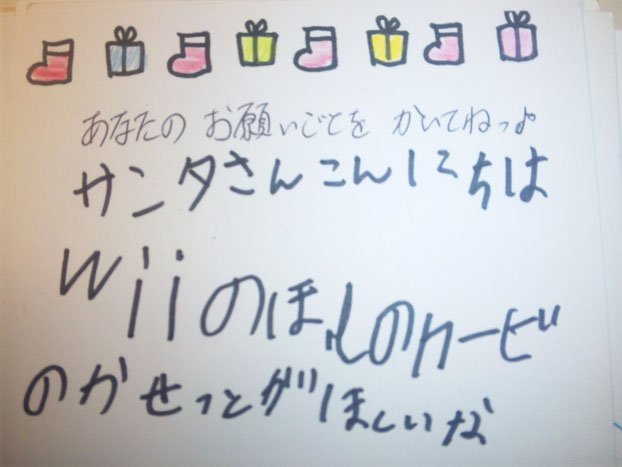 あなたの お願いごとを かいてねっよ
サンタさんこんにちは
wiiのほしのカービィ
のかせっとがほしいな